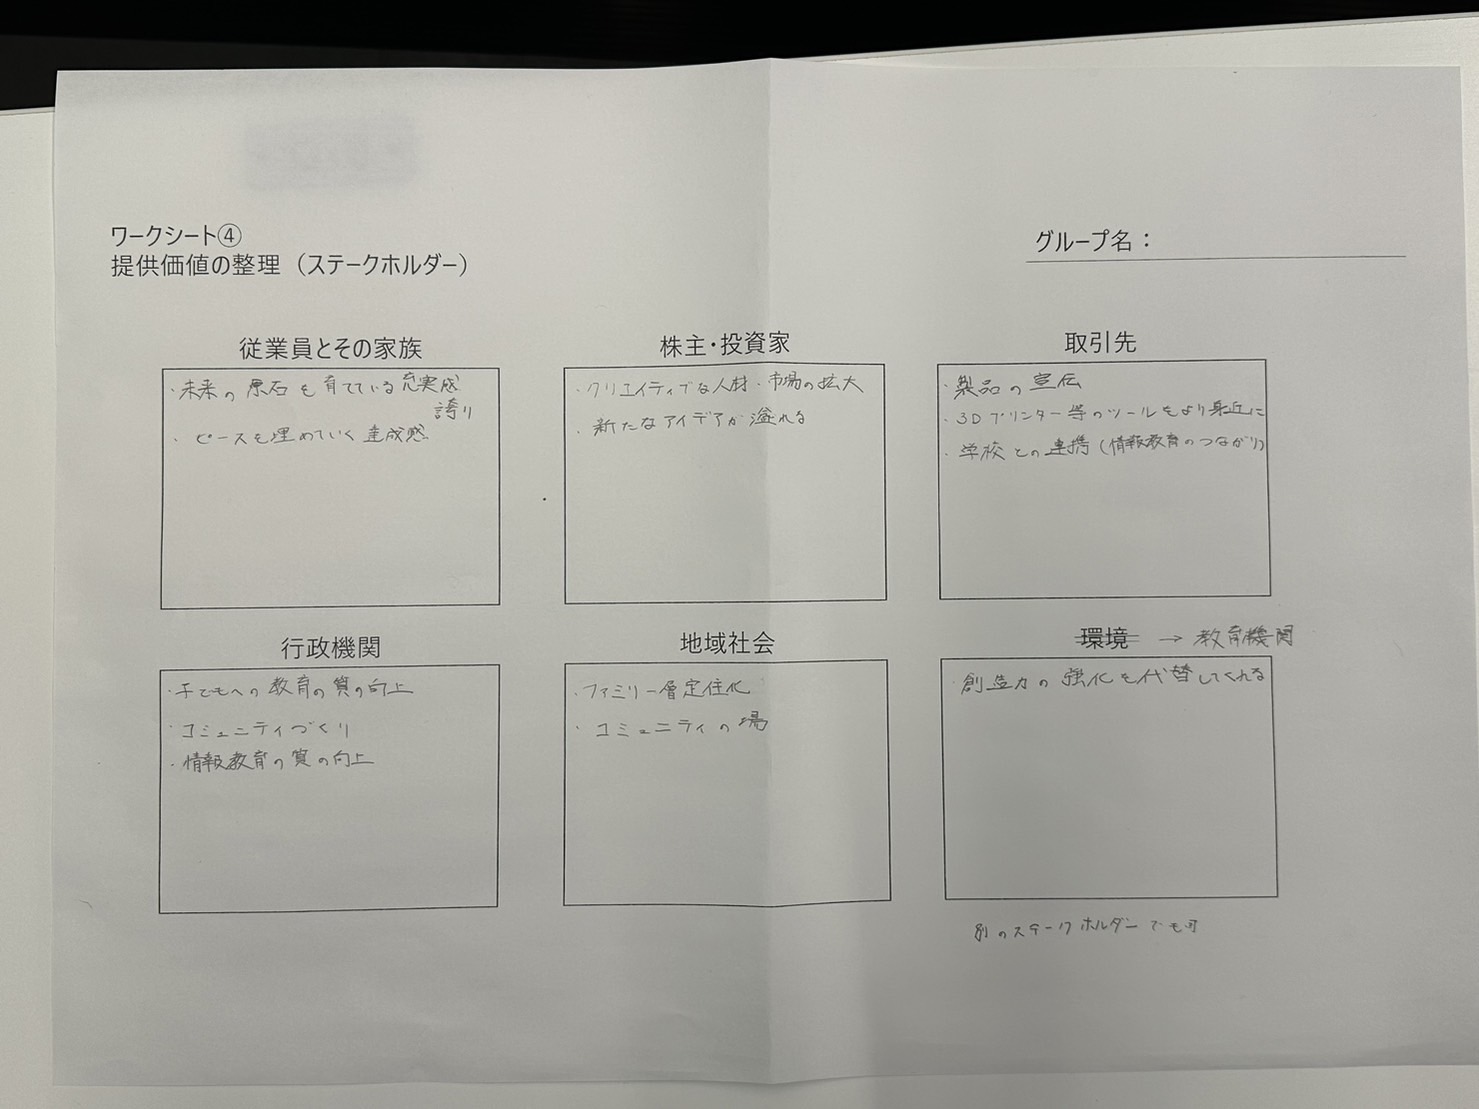 ワークシート④
提供価値の整理（ステークホルダー）
グループ名：
従業員とその家族
・未来の原石を育てている充実感
誇り
・ピースを埋めていく達成感
株主・投資家
・クリエイティブな人材・市場の拡大
・新たなアイデアが溢れる
取引先
・製品の宣伝
・3Dプリンター等のツールをより身近に
・学校との連携（情報教育のつながり）
行政機関
・子どもへの教育の質の向上
・コミュニティづくり
・情報教育の質の向上
地域社会
・ファミリー層定住化
・コミュニティの場
環境 → 教育機関
・創造力の強化を代替してくれる
別のステークホルダーでも可